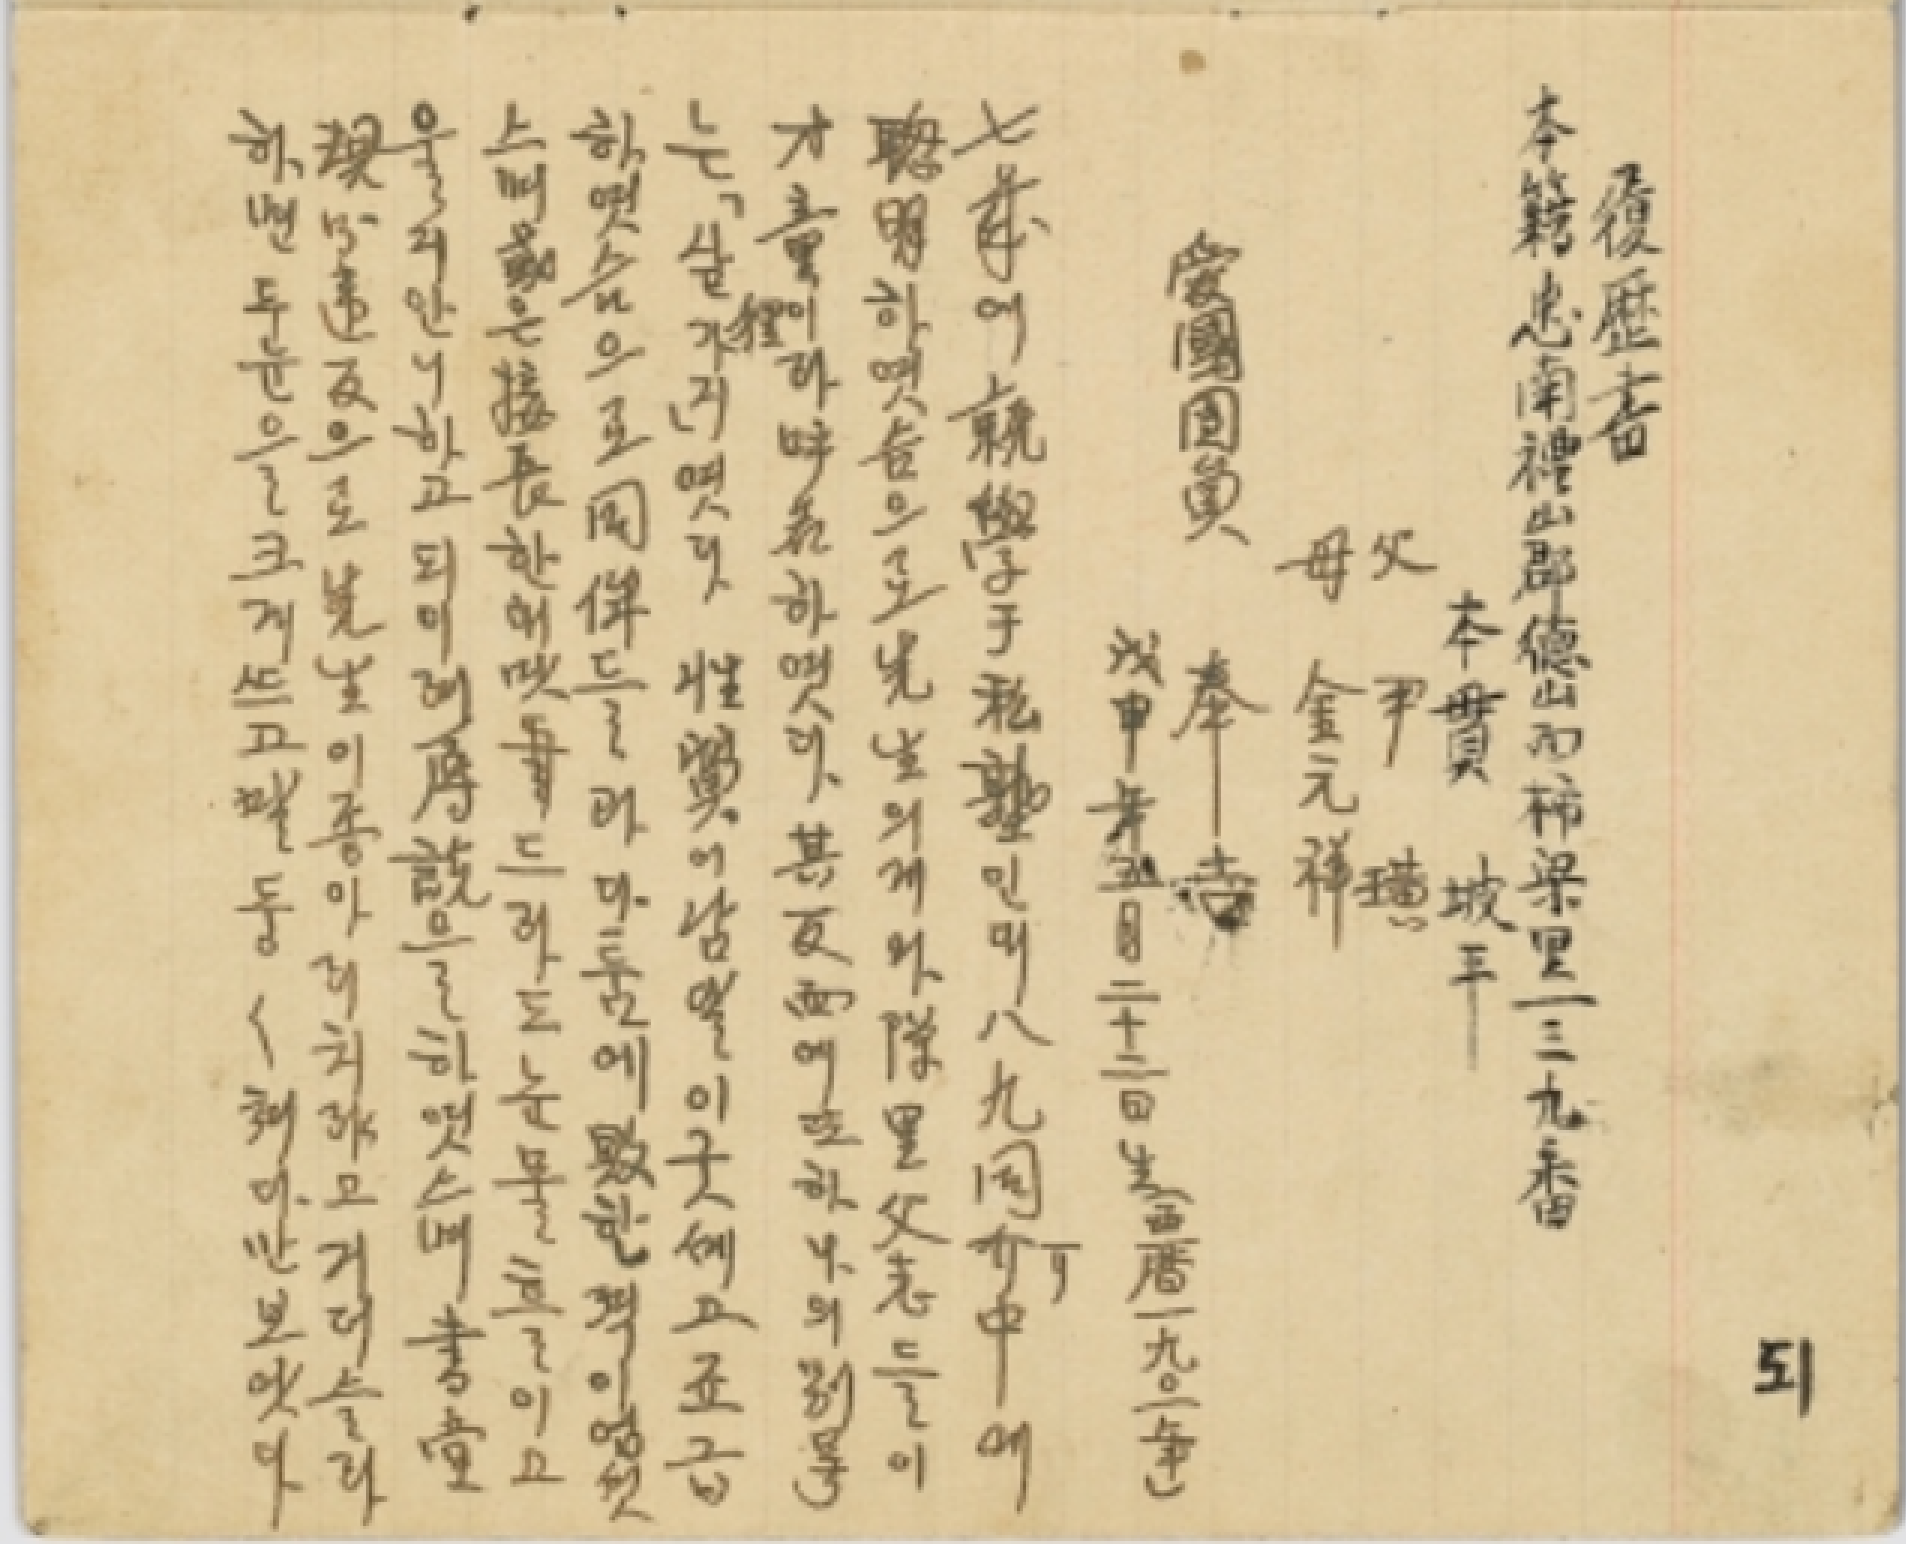 履歷書
本籍 忠南禮山郡德山面柿梁里一三九番
本貫 坡平
父 尹 璜
母 金元祥
愛國團員 奉吉
戊申年五月二十三日生(西曆一九〇八年)
七歲에就學于私塾인대八九同介中에
聰明하엿슴으로先生의게와隣里父老들이
才童이라呼名하엿다 其反面에또하나의別号
는「살가지(狸)」엿다 性質이남달이굿세고죠급
하엿슴으로同儕들과다툼에敗한적이업섯
스며或은接長한에맷를드라도눈물흘이고
울지안니하고되이려辱說을하엿스며書堂
規必違反으로先生이종아리치랴고거더슬라
하면두눈을크게쓰고말동〱처다만보앗다
되